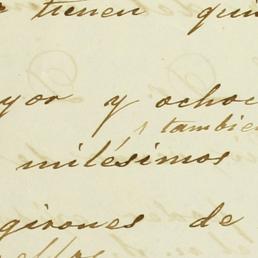 tienen qui
yor y ochoc
y tambien
milésimos
girones de